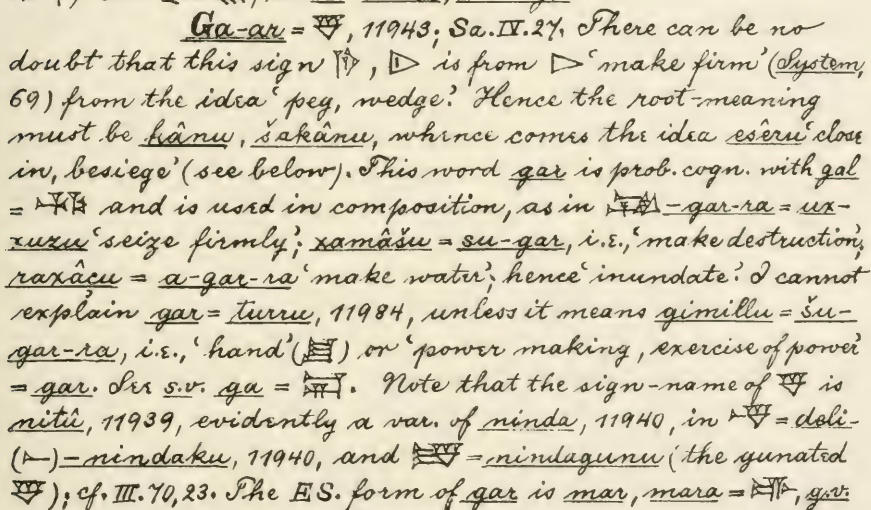 Ga-ar = 𒃻, 11943; Sa. IV. 27. There can be no
doubt that this sign , is from 'make firm' (System,
69) from the idea 'peg, wedge'. Hence the root-meaning
must be kânu, šakânu, whence comes the idea esêru 'close
in, besiege' (see below). This word gar is prob. cogn. with gal
= and is used in composition, as in -gar-ra = ux-
xuzu 'seize firmly'; xamâšu = su-gar, i.e., 'make destruction,
raxâçu = a-gar-ra 'make water', hence 'inundate'. I cannot
explain gar = turru, 11984, unless it means gimillu = šu-
gar-ra, i.e., 'hand' (𒋗) or 'power making, exercise of power'
= gar. See s.v. ga = . Note that the sign-name of 𒃻 is
nitû, 11939, evidently a var. of ninda, 11940, in = deli-
(𒀸)-nindaku, 11940, and = nindagunu (the gunated
𒃻); cf. III. 70, 23. The ES. form of gar is mar, mara = , q.v.